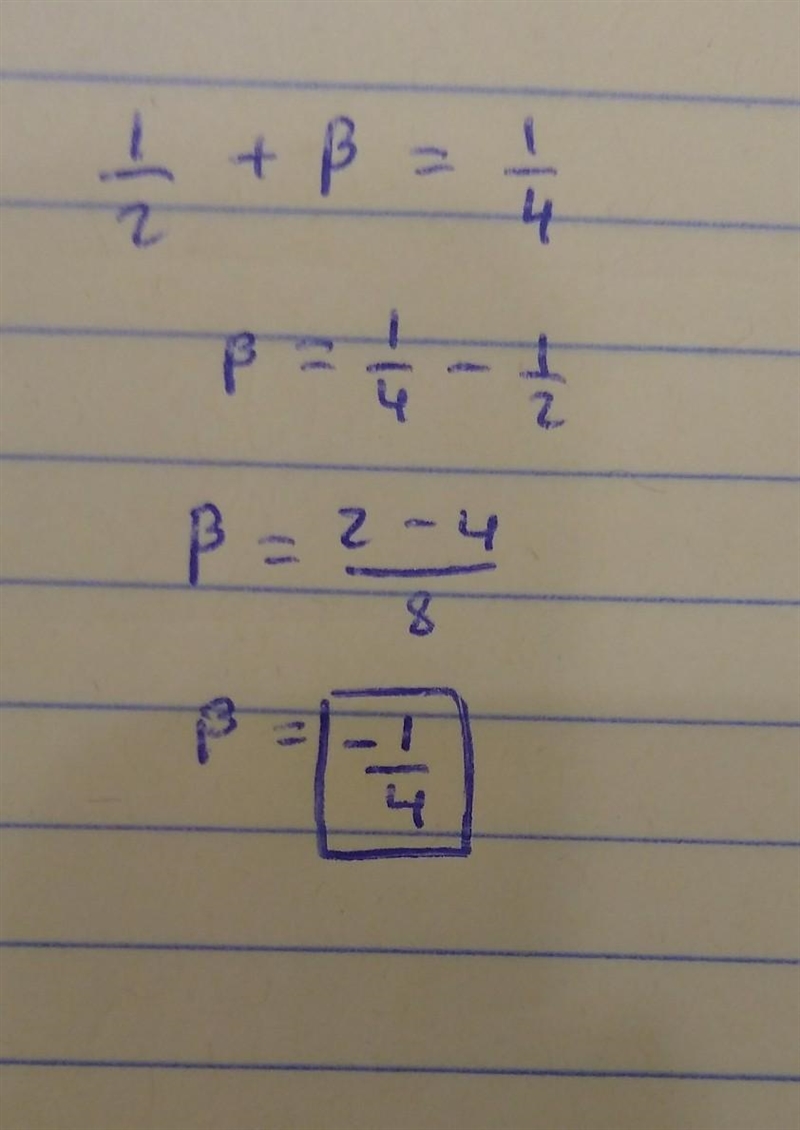 1/2 + β = 1/4
β = 1/4 - 1/2
β = (2 - 4)/8
β = -1/4